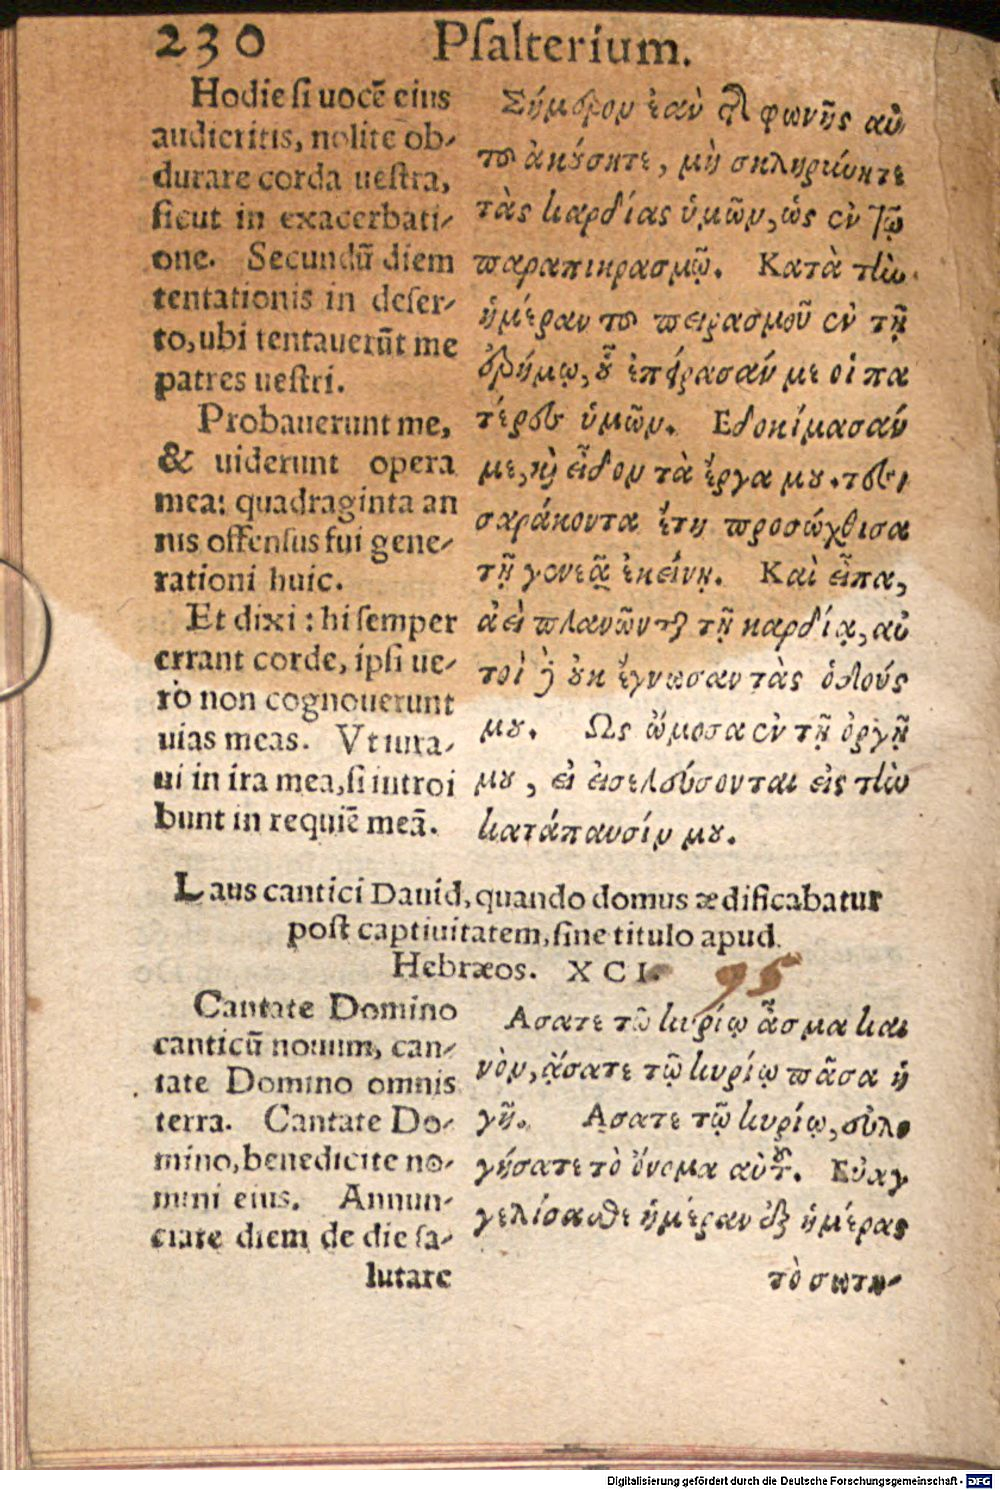 230 Psalterium.
Hodie si uocē eius
audieritis, nolite ob-
durare corda uestra,
sicut in exacerbati-
one. Secundū diem
tentationis in deser-
to, ubi tentauerūt me
patres uestri.
Probauerunt me,
& uiderunt opera
mea: quadraginta an
nis offensus fui gene-
rationi huic.
Et dixi: hi semper
errant corde, ipsi ue-
ro non cognouerunt
uias meas. Vt iura-
ui in ira mea, si introi
bunt in requiē meā.
Σήμερον ἐὰν τῆς φωνῆς αὐ
τοῦ ἀκούσητε, μὴ σκληρύνητε
τὰς καρδίας ὑμῶν, ὡς ἐν τῷ
παραπικρασμῷ. Κατὰ τὴν
ἡμέραν τοῦ πειρασμοῦ ἐν τῇ
ἐρήμῳ, οὗ ἐπείρασάν με οἱ πα
τέρες ὑμῶν. Εδοκίμασάν
με, καὶ εἶδον τὰ ἔργα μου. τεσ
σαράκοντα ἔτη προσώχθισα
τῇ γενεᾷ ἐκείνῃ. Καὶ εἶπα,
ἀεὶ πλανῶνται τῇ καρδίᾳ, αὐ
τοὶ δὲ οὐκ ἔγνωσαν τὰς ὁδούς
μου. Ως ὤμοσα ἐν τῇ ὀργῇ
μου, εἰ εἰσελεύσονται εἰς τὴν
κατάπαυσίν μου.
Laus cantici Dauid, quando domus ædificabatur
post captiuitatem, sine titulo apud
Hebræos. XCI. 95
Cantate Domino
canticū nouum, can-
tate Domino omnis
terra. Cantate Do-
mino, benedicite no-
mini eius. Annun-
ciate diem de die sa-
lutare
Ασατε τῷ κυρίῳ ᾆσμα και
νὸν, ᾄσατε τῷ κυρίῳ πᾶσα ἡ
γῆ. Ασατε τῷ κυρίῳ, εὐλο
γήσατε τὸ ὄνομα αὐτοῦ. Εὐαγ
γελίσασθε ἡμέραν ἐξ ἡμέρας
τὸ σωτη-
Digitalisierung gefördert durch die Deutsche Forschungsgemeinschaft - DFG